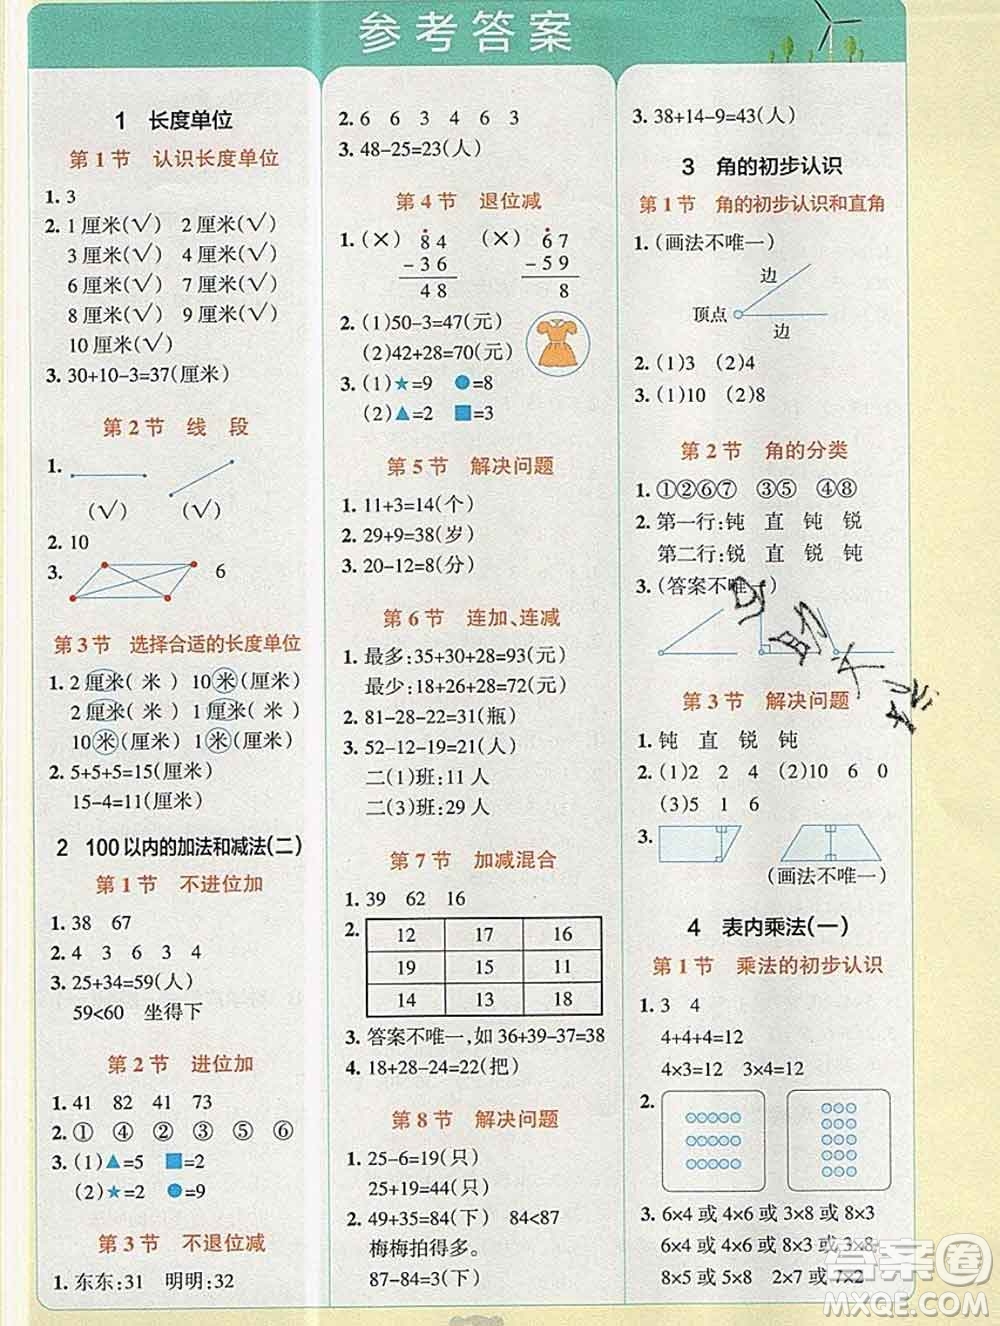 参考答案
1 长度单位
第1节 认识长度单位
1. 3
2. 1厘米(√) 2厘米(√)
3厘米(√) 4厘米(√)
6厘米(√) 7厘米(√)
8厘米(√) 9厘米(√)
10厘米(√)
3. 30+10-3=37(厘米)
第2节 线 段
1.
(√) (√)
2. 10
3. 6
第3节 选择合适的长度单位
1. 2 厘米(米) 10 米(厘米)
2 厘米(米) 1 厘米(米)
10 米(厘米) 1 米(厘米)
2. 5+5+5=15(厘米)
15-4=11(厘米)
2 100以内的加法和减法(二)
第1节 不进位加
1. 38 67
2. 4 3 6 3 4
3. 25+34=59(人)
59<60 坐得下
第2节 进位加
1. 41 82 41 73
2. ① ④ ② ③ ⑤ ⑥
3. (1)▲=5 ■=2
(2)★=2 ●=9
第3节 不退位减
1. 东东:31 明明:32
2. 6 6 3 4 6 3
3. 48-25=23(人)
第4节 退位减
1. (×) 84 (×) 67
-36 -59
48 8
2. (1)50-3=47(元)
(2)42+28=70(元)
3. (1)★=9 ●=8
(2)▲=2 ■=3
第5节 解决问题
1. 11+3=14(个)
2. 29+9=38(岁)
3. 20-12=8(分)
第6节 连加、连减
1. 最多:35+30+28=93(元)
最少:18+26+28=72(元)
2. 81-28-22=31(瓶)
3. 52-12-19=21(人)
二(1)班:11人
二(3)班:29人
第7节 加减混合
1. 39 62 16
2. 12 17 16
19 15 11
14 13 18
3. 答案不唯一,如 36+39-37=38
4. 18+28-24=22(把)
第8节 解决问题
1. 25-6=19(只)
25+19=44(只)
2. 49+35=84(下) 84<87
梅梅拍得多。
87-84=3(下)
3. 38+14-9=43(人)
3 角的初步认识
第1节 角的初步认识和直角
1. (画法不唯一)
边
顶点
边
2. (1)3 (2)4
3. (1)10 (2)8
第2节 角的分类
1. ①②⑥⑦ ③⑤ ④⑧
2. 第一行:钝 直 钝 锐
第二行:锐 直 锐 钝
3. (答案不唯一)
第3节 解决问题
1. 钝 直 锐 钝
2. (1)2 2 4 (2)10 6 0
(3)5 1 6
3.
(画法不唯一)
4 表内乘法(一)
第1节 乘法的初步认识
1. 3 4
4+4+4=12
4×3=12 3×4=12
2.
3. 6×4 或 4×6 或 3×8 或 8×3
6×4 或 4×6 或 3×8 或 8×3
8×5 或 5×8 2×7 或 7×2
作业助
答案圈
MXQE.COM